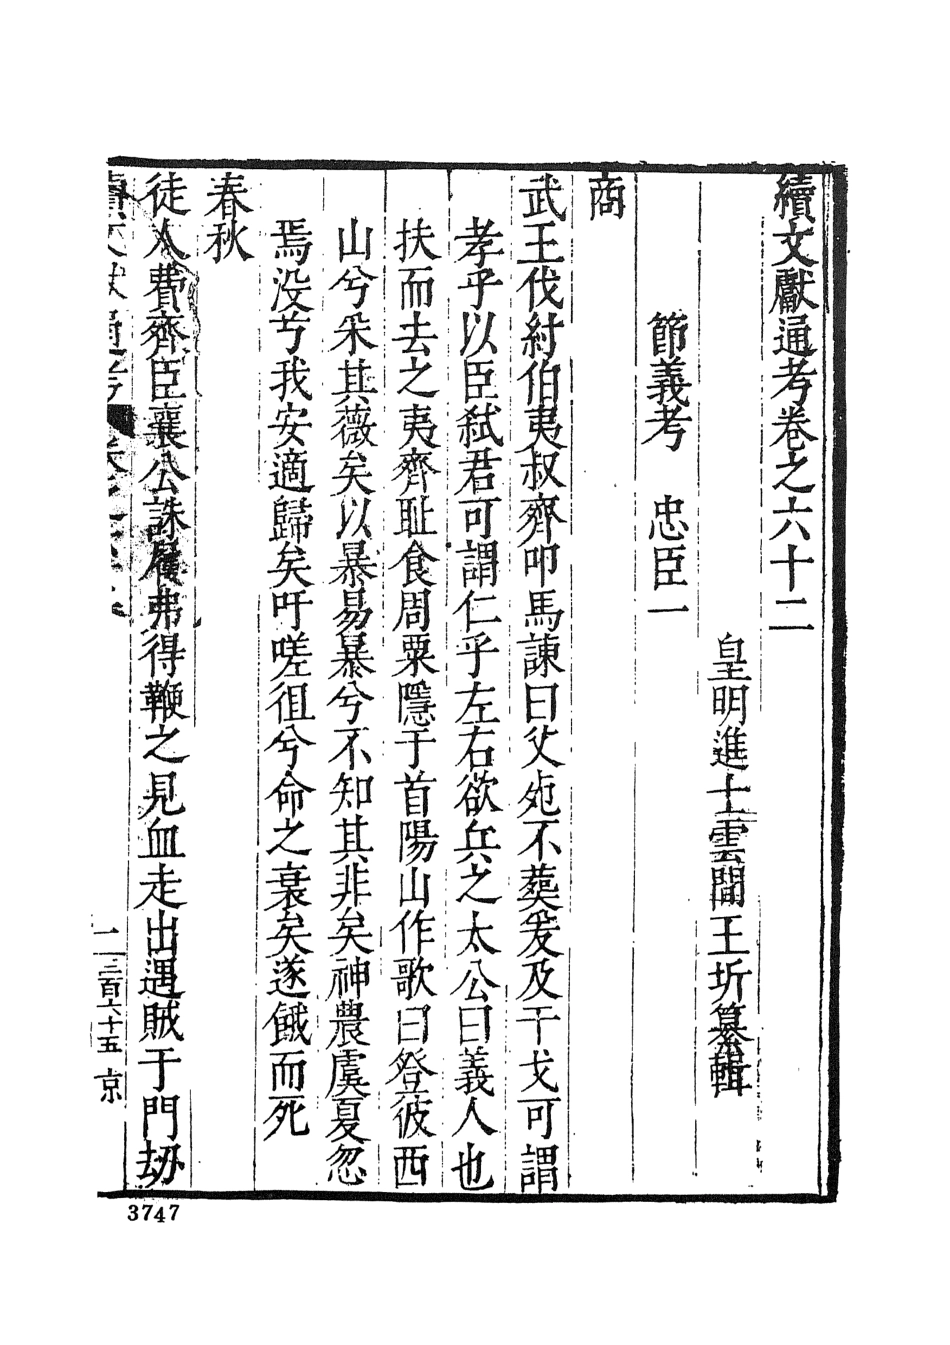 續文獻通考卷之六十二
皇明進士雲間王圻纂輯
節義考 忠臣一
商
武王伐紂伯夷叔齊叩馬諫曰父死不葬爰及干戈可謂
孝乎以臣弑君可謂仁乎左右欲兵之太公曰義人也
扶而去之夷齊耻食周粟隱于首陽山作歌曰登彼西
山兮采其薇矣以暴易暴兮不知其非矣神農虞夏忽
焉没兮我安適歸矣吁嗟徂兮命之衰矣遂餓而死
春秋
徒人費齊臣襄公誅屨弗得鞭之見血走出遇賊于門劫
續文獻通考
一 二百六十五 京
3747